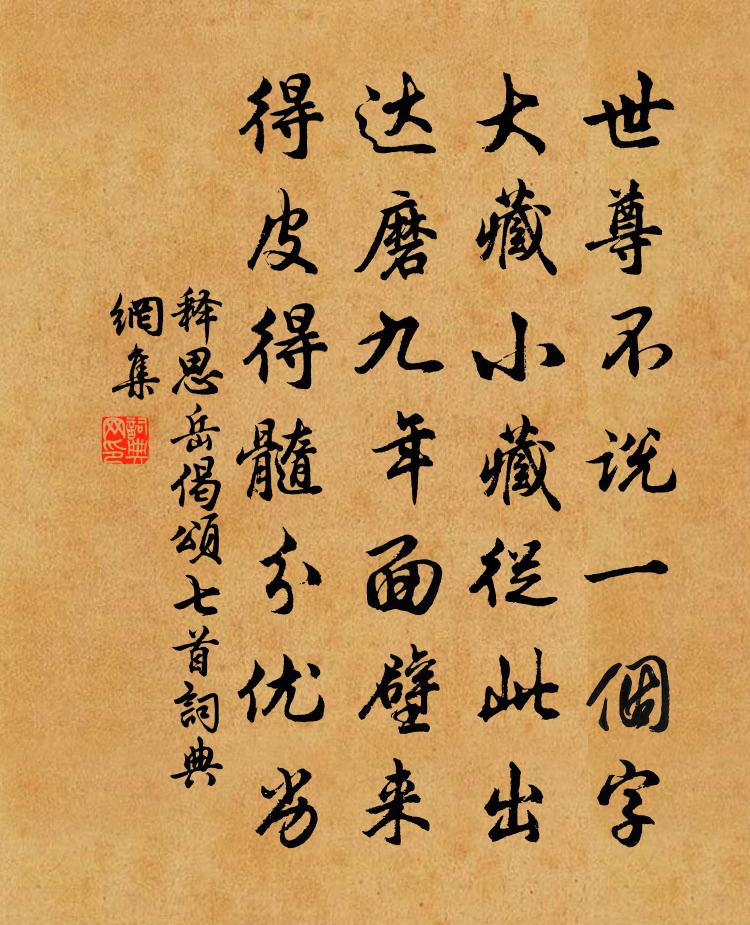 世尊不说一個字
大藏小藏從此出
达磨九年面壁来
得皮得髓分优劣
释思岳偈頌七首詞典
網集
詞典
网印